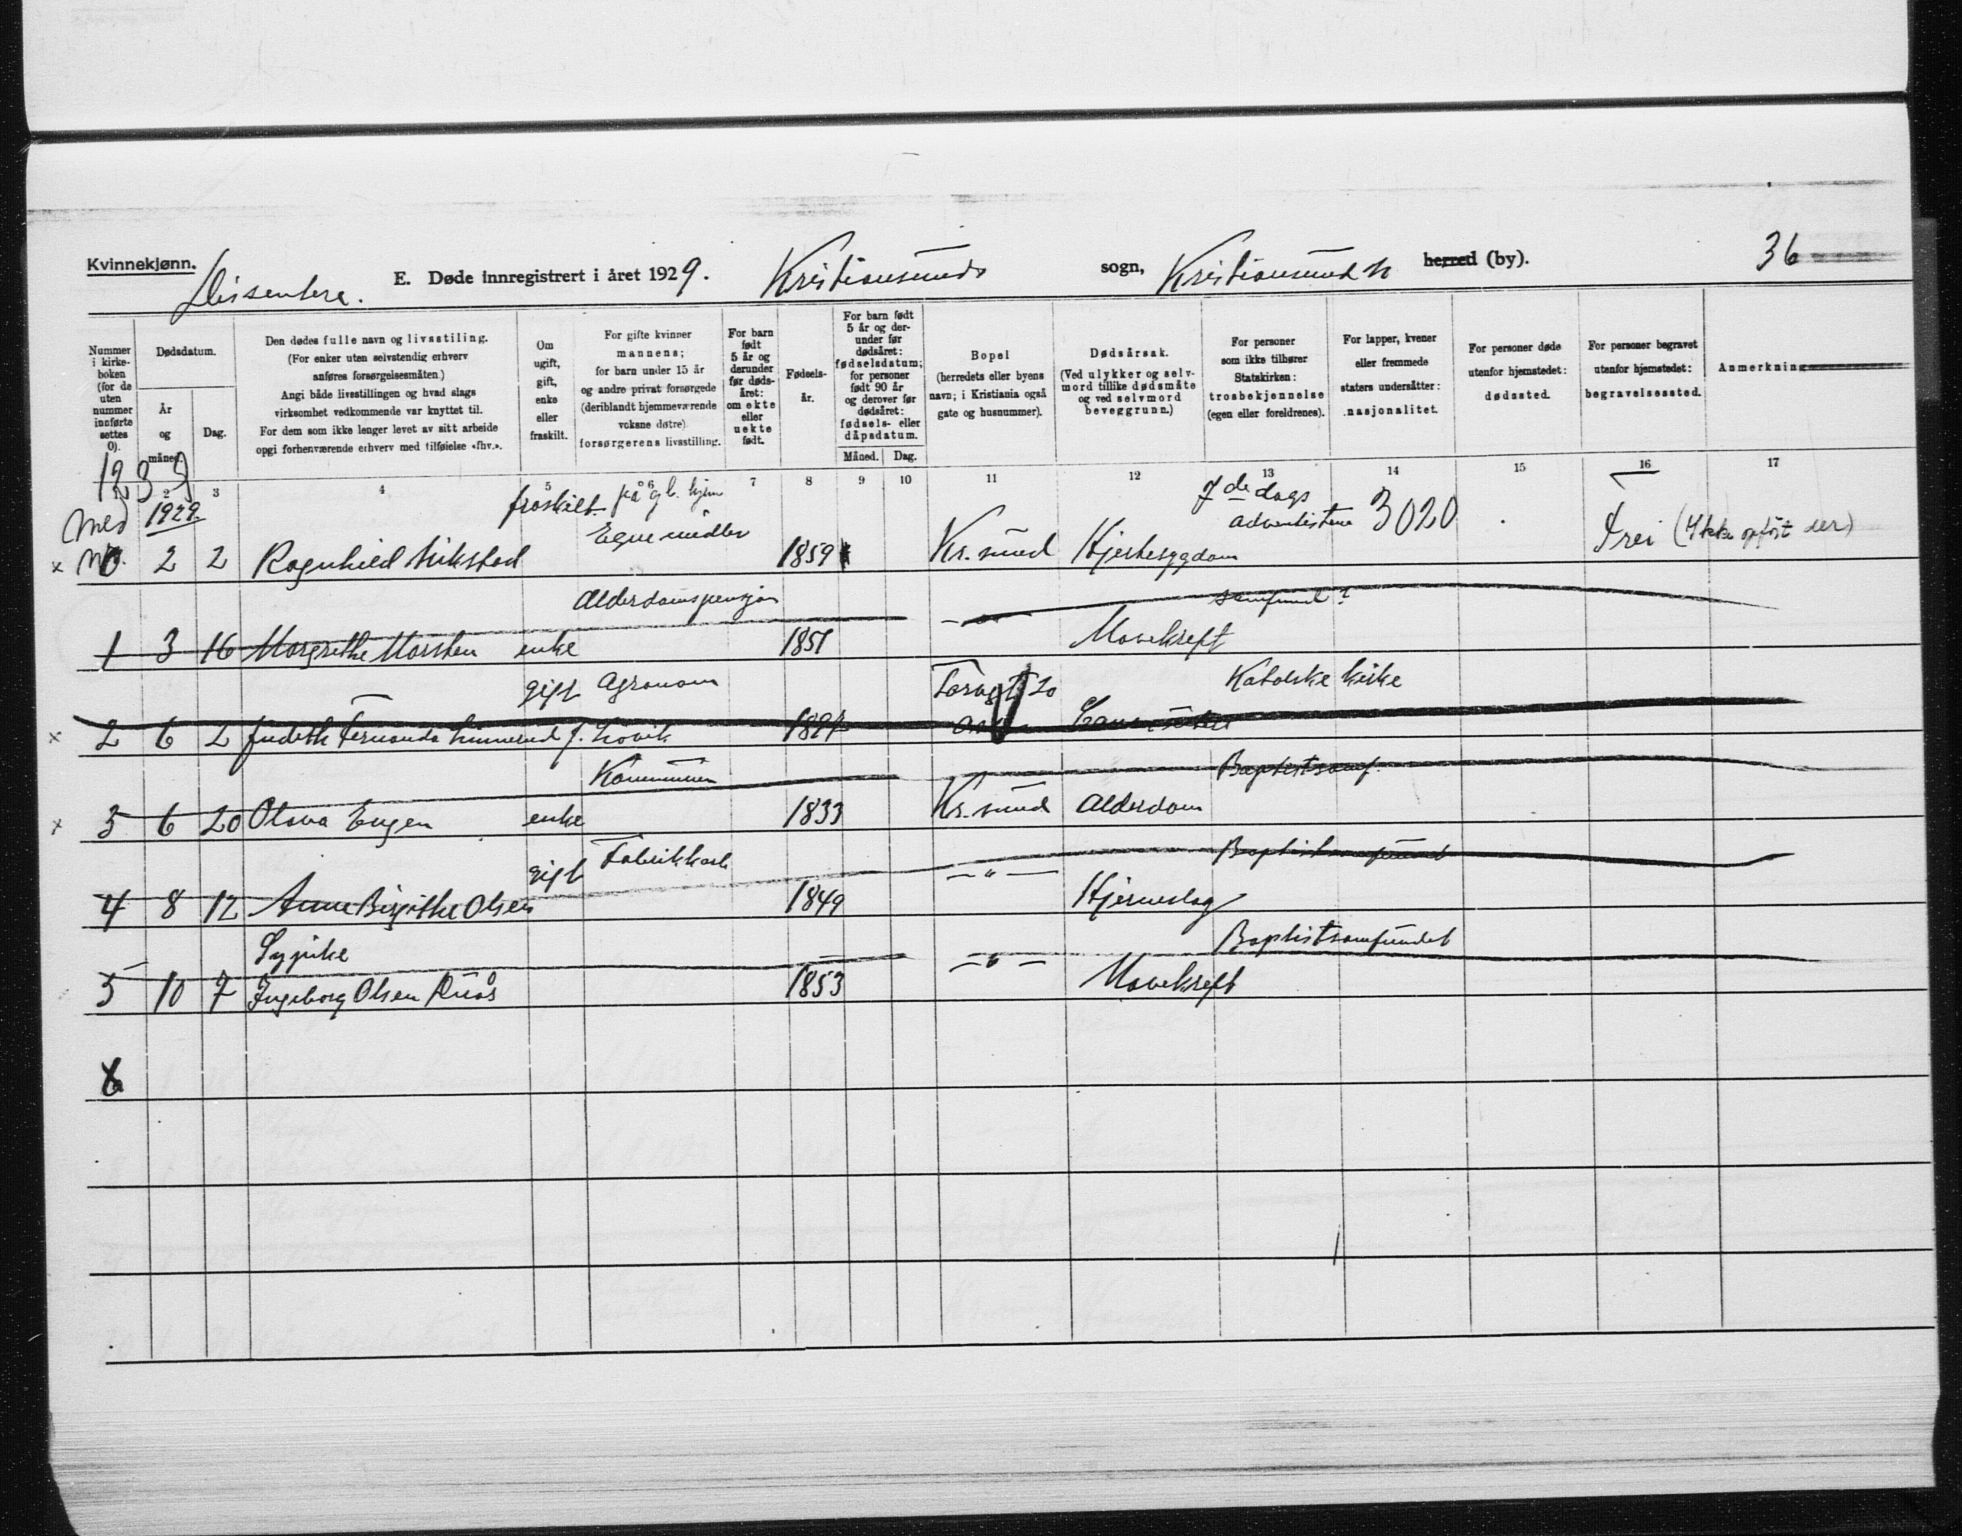 Kvinnekjønn.
Dissentere.
E. Døde innregistrert i året 1929. Kristiansunds sogn, Kristiansund N herred (by). 36
Nummer i kirkeboken (for de uten nummer innførte settes 0).
Dødsdatum.
År og måned.
Dag.
Den dødes fulle navn og livsstiling.
(For enker uten selvstendig erhverv anføres forsørgelsesmåten.)
Angi både livsstillingen og hvad slags virksomhet vedkommende var knyttet til.
For dem som ikke lenger levet av sitt arbeide opgi forhenværende erhverv med tilføielse «fhv.».
Om ugift, gift, enke eller fraskilt.
For gifte kvinner mannens; for barn under 15 år og andre privat forsørgede (deriblandt hjemmeværende voksne døtre) forsørgerens livsstilling.
For barn født 5 år og derunder før dødsåret: om ekte eller uekte født.
Fødselsår.
For barn født 5 år og derunder før dødsåret: fødselsdatum; for personer født 90 år og derover før dødsåret: fødsels- eller dåpsdatum.
Måned. Dag.
Bopel (herredets eller byens navn; i Kristiania også gate og husnummer).
Dødsårsak. (Ved ulykker og selvmord tillike dødsmåte og ved selvmord beveggrunn.)
For personer som ikke tilhører Statskirken: trosbekjennelse (egen eller foreldrenes).
For lapper, kvener eller fremmede staters undersåtter: nasjonalitet.
For personer døde utenfor hjemstedet: dødssted.
For personer begravet utenfor hjemstedet: begravelsessted.
Anmerkning
2 3 4 5 6 7 8 9 10 11 12 13 14 15 16 17
1239
1929.
fraskilt på g b. hjem
7de dags
Med
Egne midler
Adventistene 3020
x 0 2 2 Ragnhild 1859 Kr.sund Hjertesygdom Frei (Ikke opført der)
Alderdomspensjon
samfund?
1 3 16 Margrethe enke 1851 —"— Mavekreft
gift Agronom 20 Katolske kirke
x 2 6 2 Judith Fernanda f. 1894
Kommunen Baptistsamf.
x 3 6 20 Olava Engen enke 1833 Kr.sund Alderdom
gift Fabrikkarb. Baptistsamfundet
4 8 12 Anne Birgithe Olsen 1849 —"— Hjerneslag
Sypike Baptistsamfundet
5 10 7 Ingeborg Olsen Ruås 1853 —"— Mavekreft
6